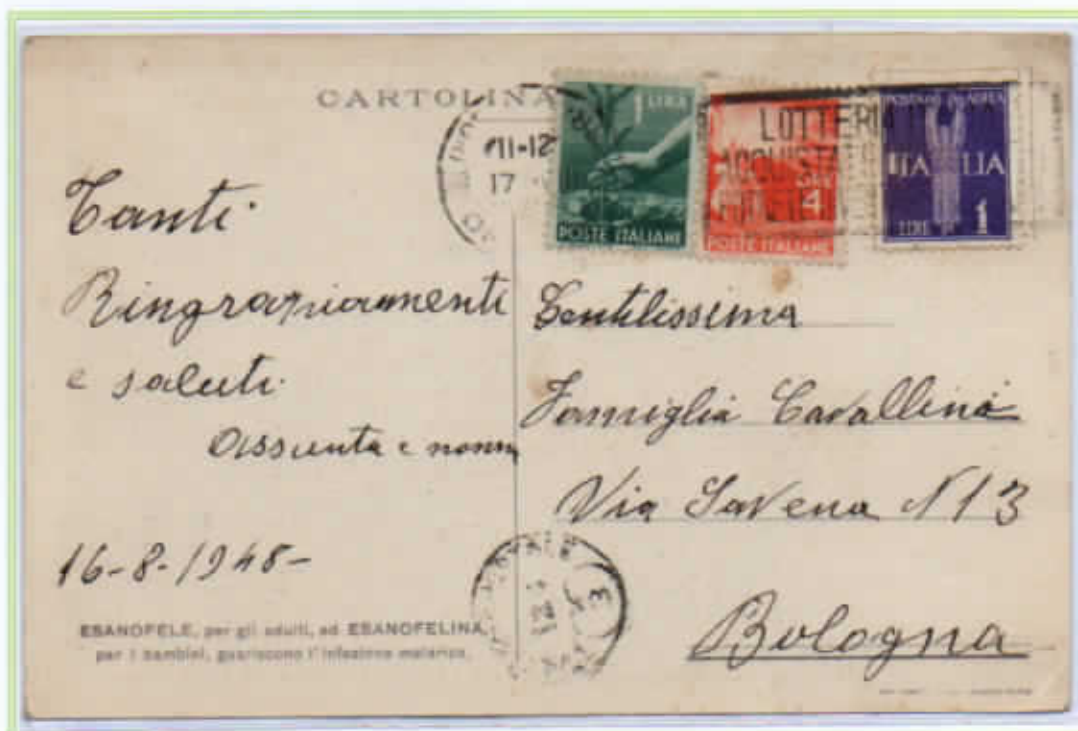 CARTOLINA
11-12
17
1 LIRA
POSTE ITALIANE
LIRE
4
POSTE ITALIANE
LOTTERIA
POSTA AEREA
ITALIA
LIRE 1
Tanti
Ringraziamenti
e saluti
Assunta e nonna
16-8-1948-
ESANOFELE, per gli adulti, ed ESANOFELINA,
per i bambini, guariscono l'infezione malarica.
Gentilissima
Famiglia Cavallina
Via Savena N 13
Bologna